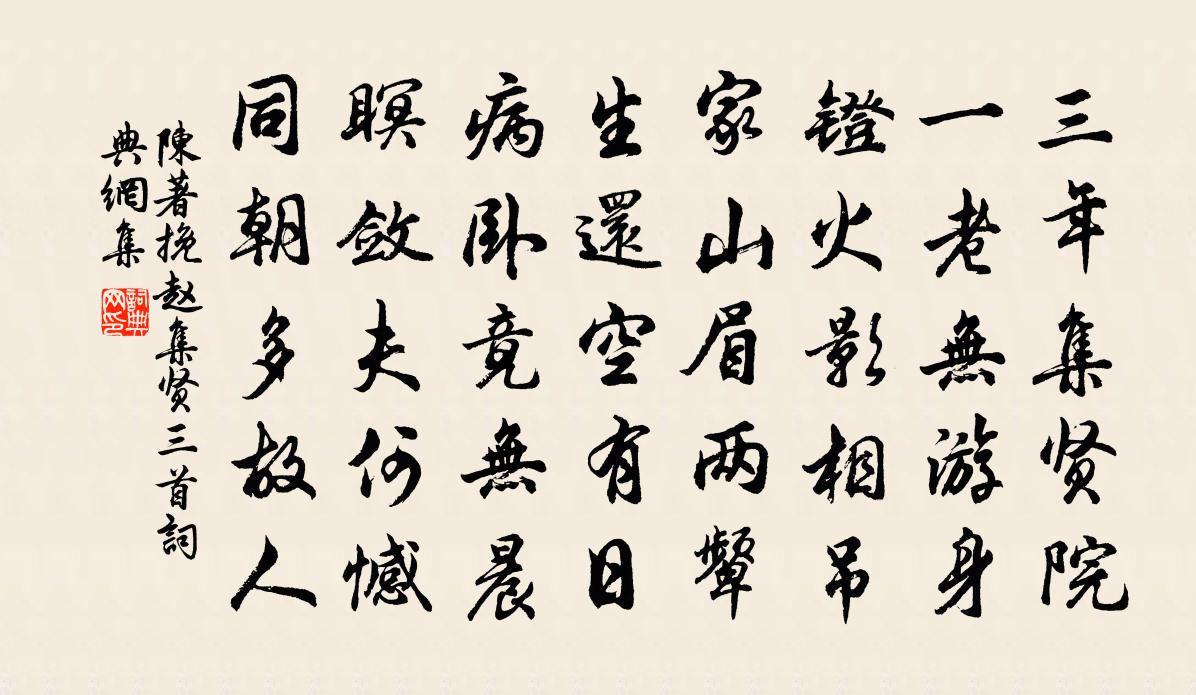 三年集贤院
一老無游身
鐙火影相吊
家山眉两顰
生還空有日
病卧竟無晨
瞑斂夫何憾
同朝多故人
陳著挽赵集贤三首詞
典網集
詞典
网印